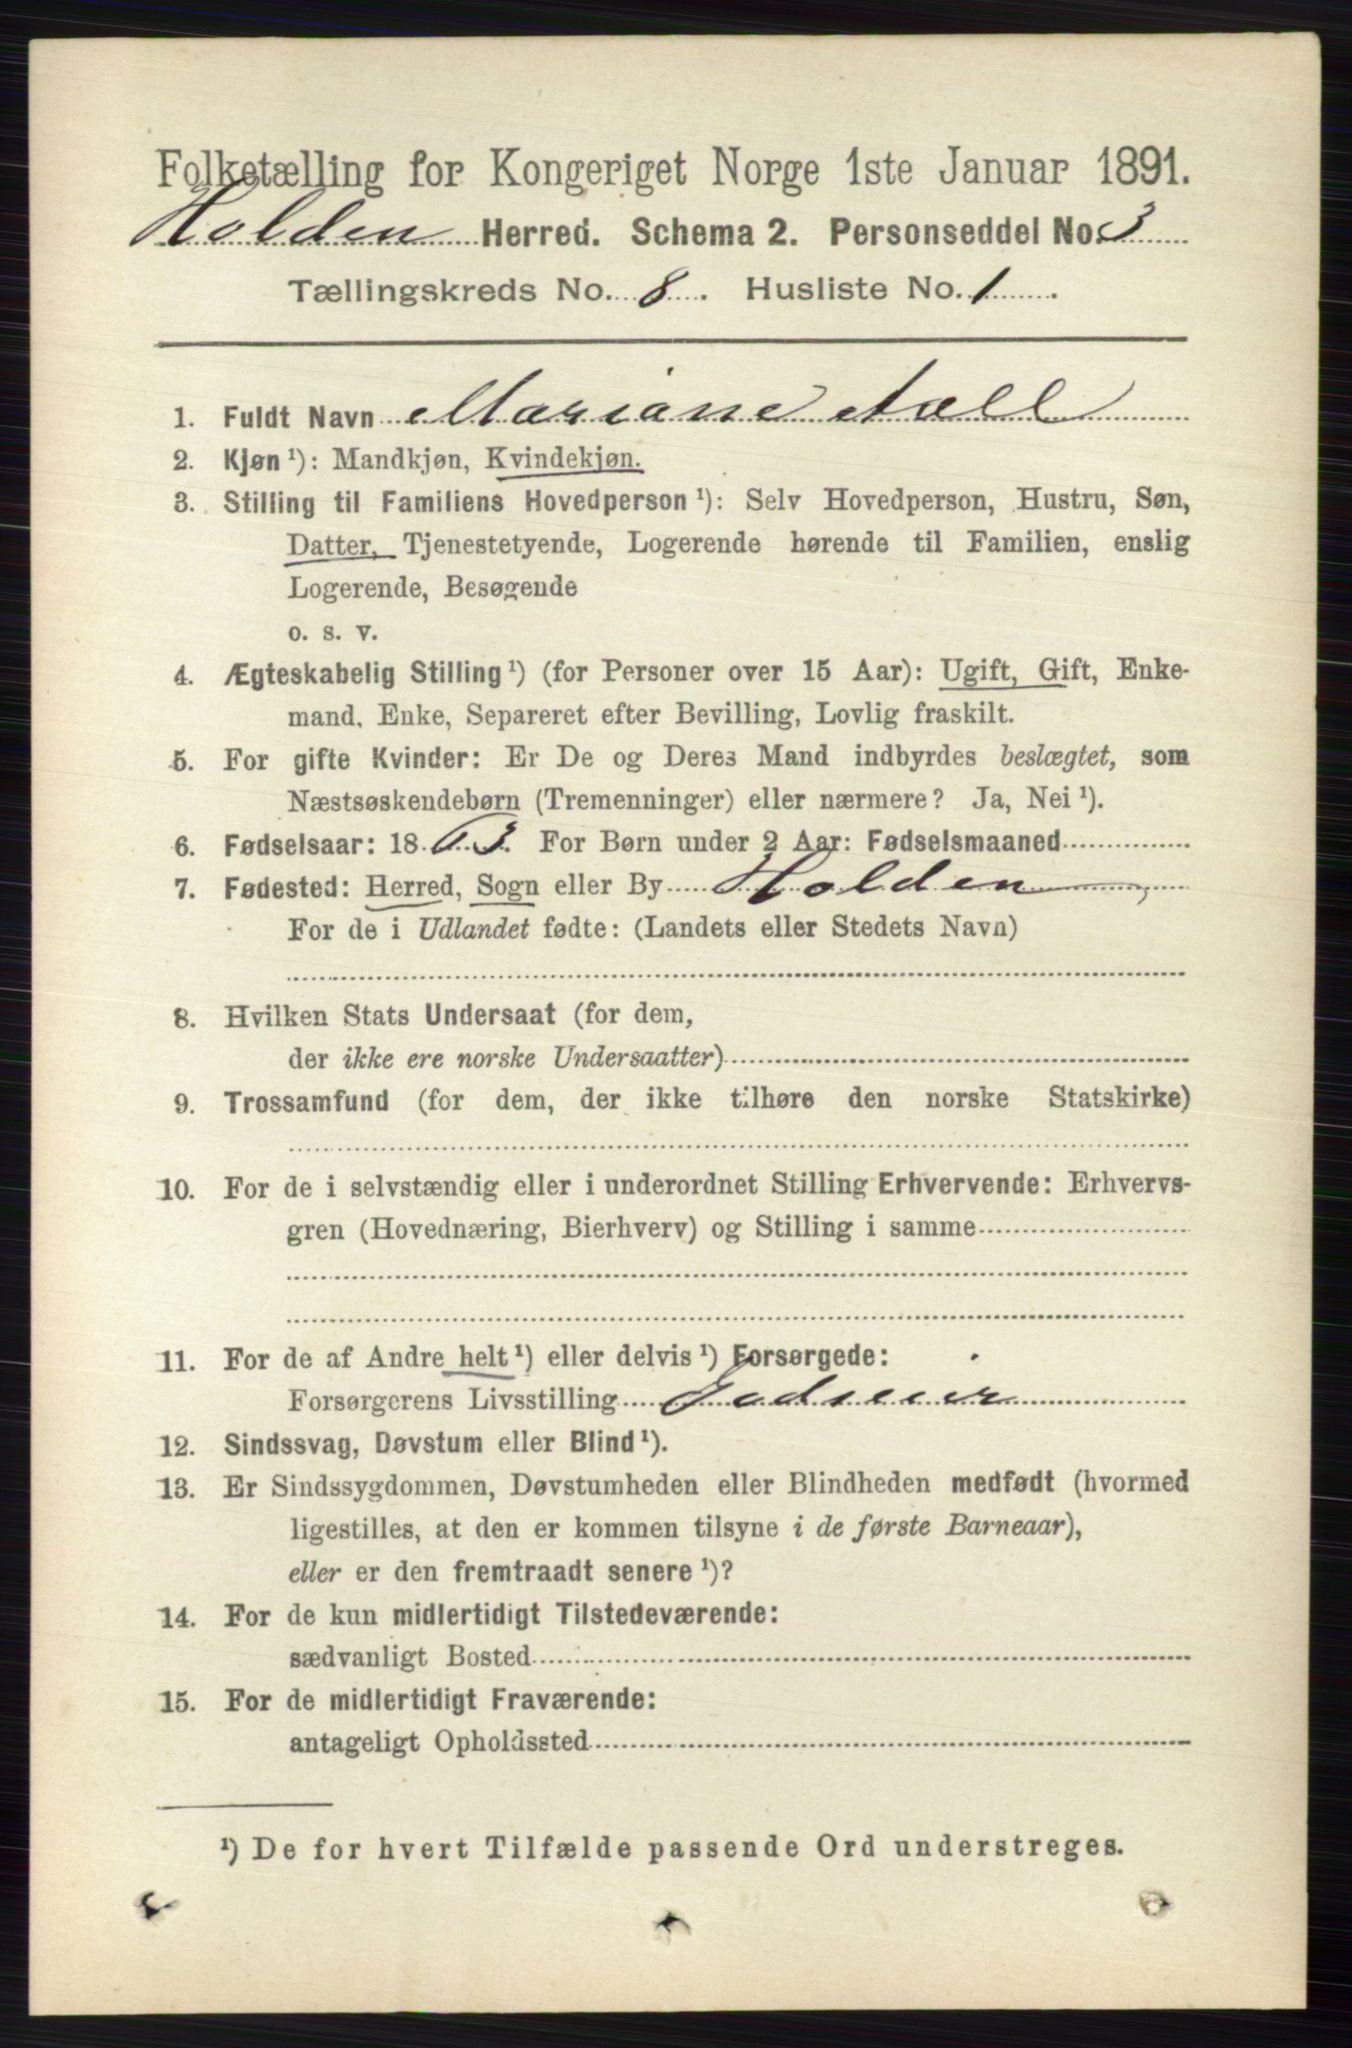 Folketælling for Kongeriget Norge 1ste Januar 1891.
Holden Herred. Schema 2. Personseddel No. 3
Tællingskreds No. 8. Husliste No. 1.
1. Fuldt Navn Mariane Aall
2. Kjøn ¹): Mandkjøn, Kvindekjøn.
3. Stilling til Familiens Hovedperson ¹): Selv Hovedperson, Hustru, Søn,
Datter, Tjenestetyende, Logerende hørende til Familien, enslig
Logerende, Besøgende
o. s. v.
4. Ægteskabelig Stilling ¹) (for Personer over 15 Aar): Ugift, Gift, Enke-
mand, Enke, Separeret efter Bevilling, Lovlig fraskilt.
5. For gifte Kvinder: Er De og Deres Mand indbyrdes beslægtet, som
Næstsøskendebørn (Tremenninger) eller nærmere? Ja, Nei ¹).
6. Fødselsaar: 1863. For Børn under 2 Aar: Fødselsmaaned
7. Fødested: Herred, Sogn eller By Holden,
For de i Udlandet fødte: (Landets eller Stedets Navn)
8. Hvilken Stats Undersaat (for dem,
der ikke ere norske Undersaatter)
9. Trossamfund (for dem, der ikke tilhøre den norske Statskirke)
10. For de i selvstændig eller i underordnet Stilling Erhvervende: Erhvervs-
gren (Hovednæring, Bierhverv) og Stilling i samme
11. For de af Andre helt ¹) eller delvis ¹) Forsørgede:
Forsørgerens Livsstilling Godseier
12. Sindssvag, Døvstum eller Blind ¹).
13. Er Sindssygdommen, Døvstumheden eller Blindheden medfødt (hvormed
ligestilles, at den er kommen tilsyne i de første Barneaar),
eller er den fremtraadt senere ¹)?
14. For de kun midlertidigt Tilstedeværende:
sædvanligt Bosted
15. For de midlertidigt Fraværende:
antageligt Opholdssted
¹) De for hvert Tilfælde passende Ord understreges.